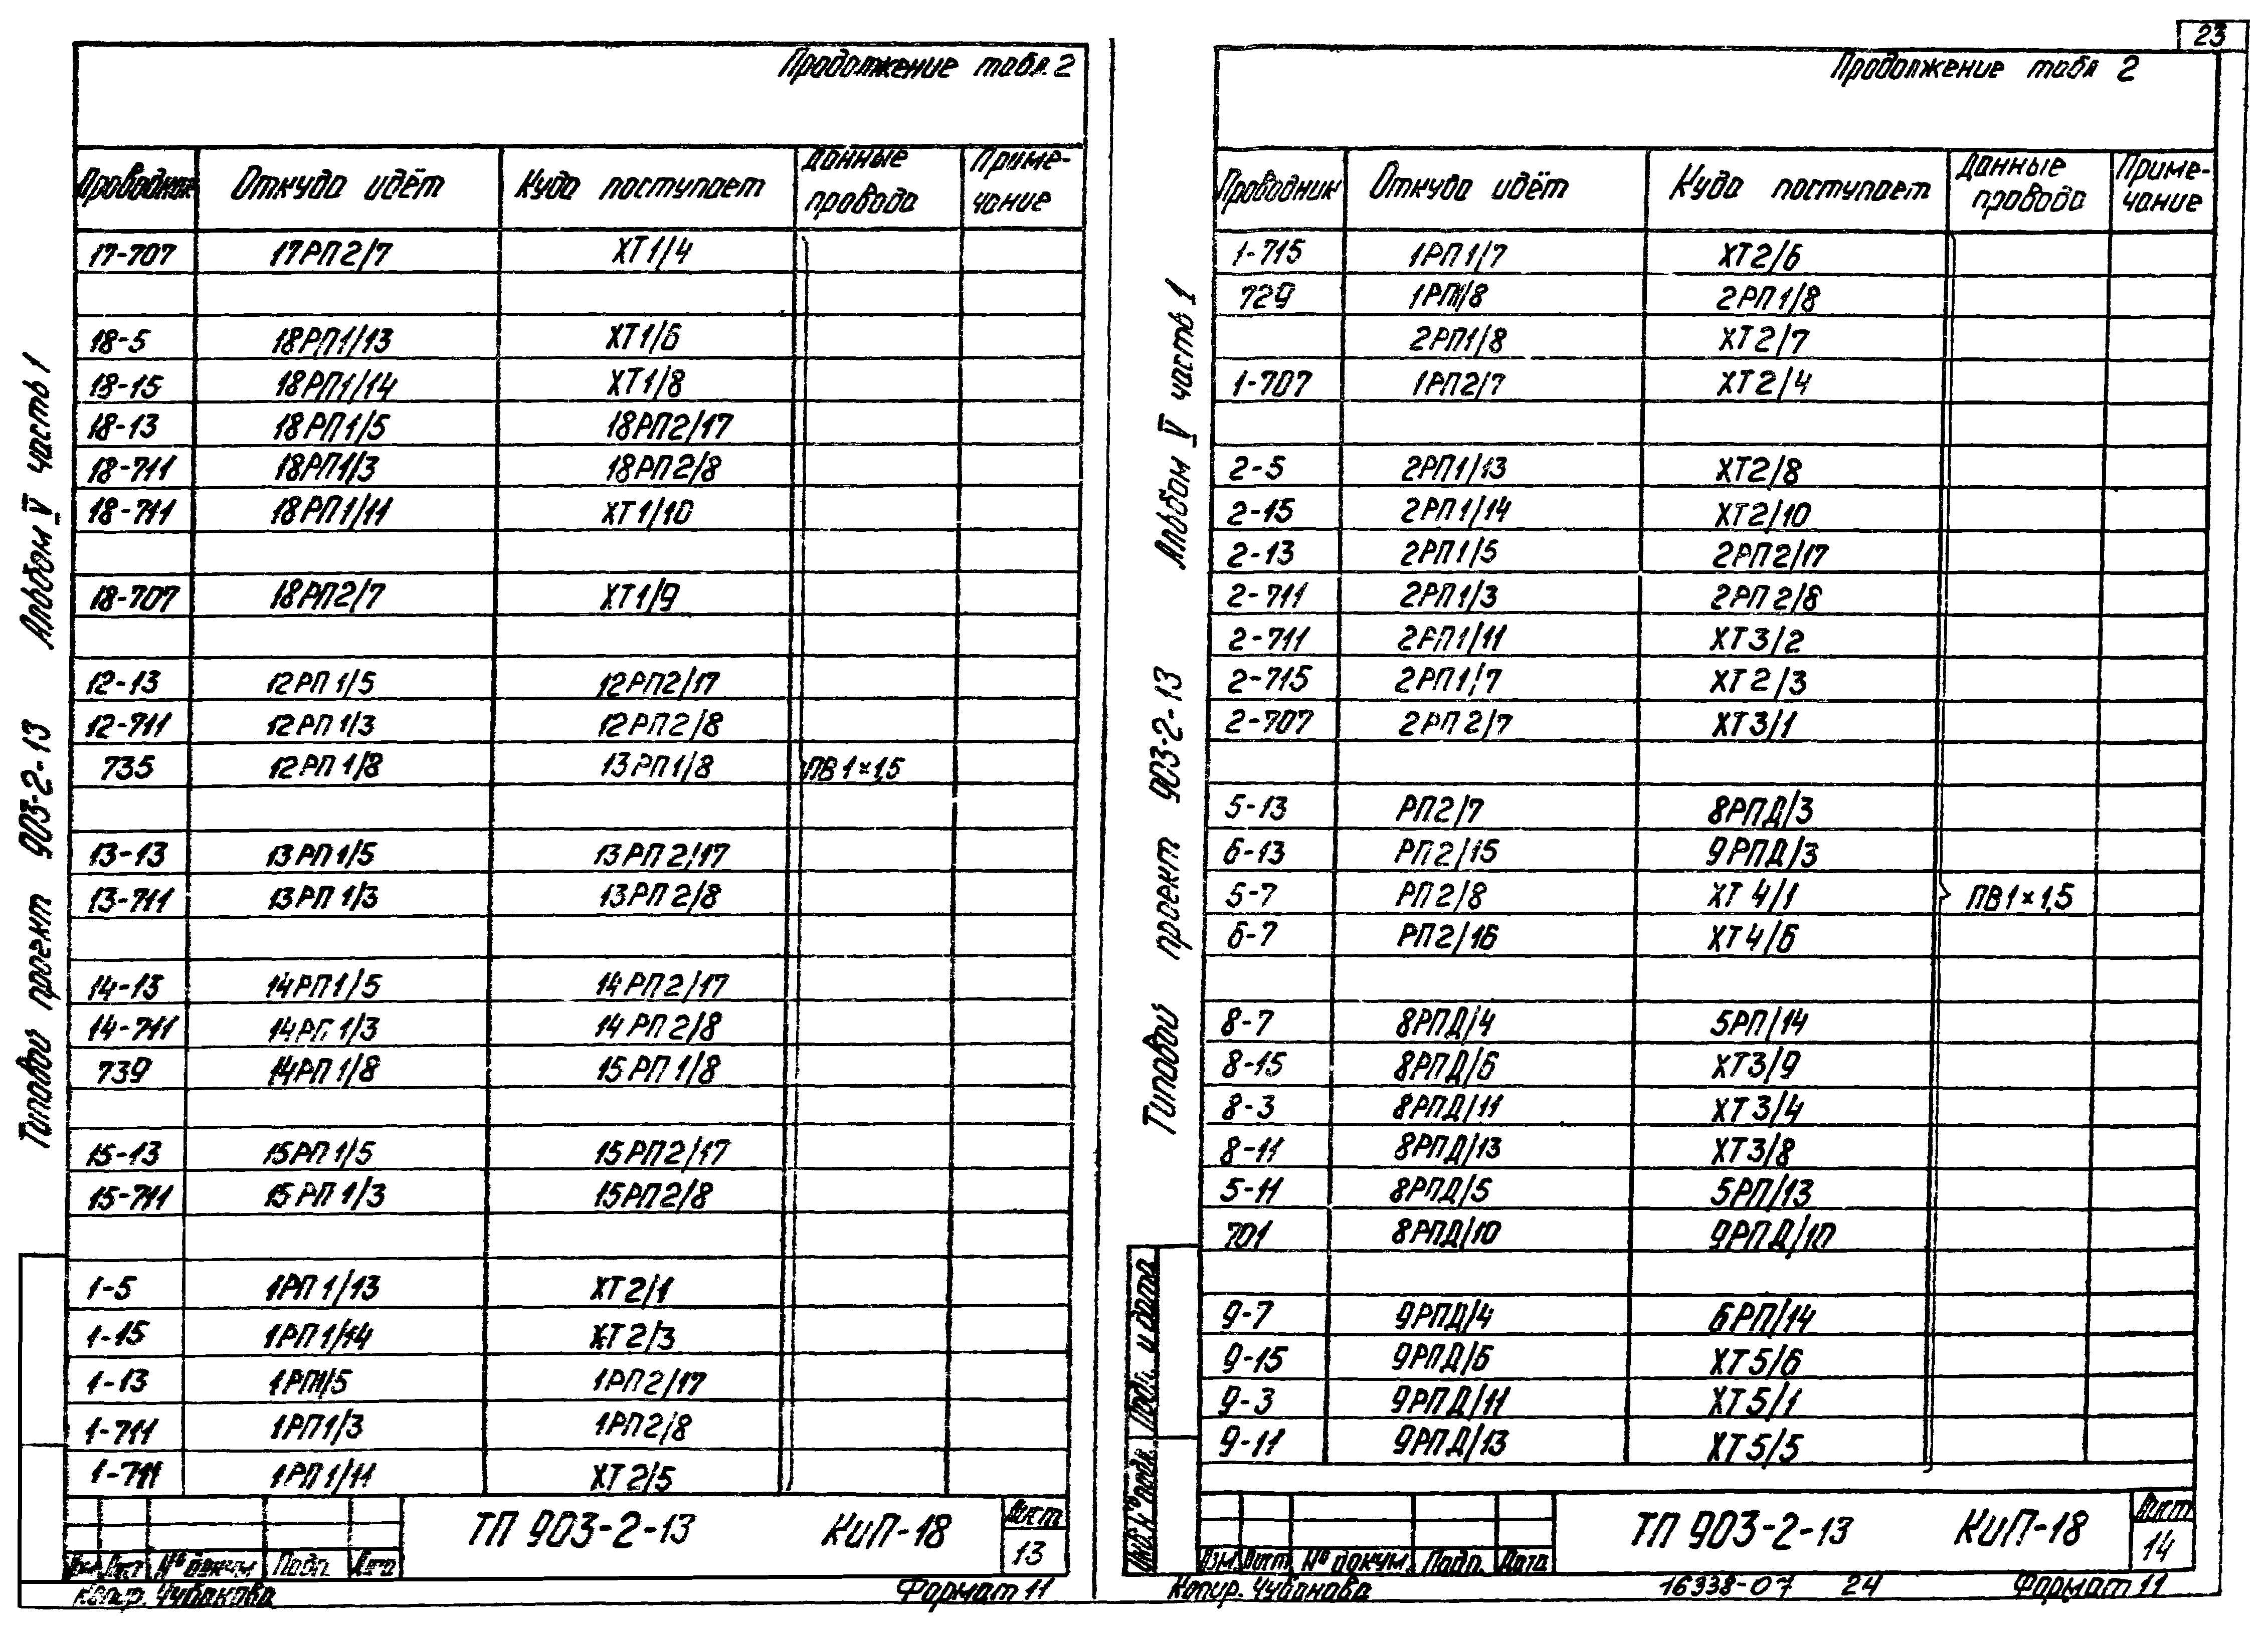 23
Продолжение табл. 2
Проводник Откуда идёт Куда поступает Данные провода Приме-чание
17-707 17РП2/7 ХТ1/4
18-5 18РП1/13 ХТ1/6
18-15 18РП1/14 ХТ1/8
18-13 18РП1/5 18РП2/17
18-711 18РП1/3 18РП2/8
18-711 18РП1/11 ХТ1/10
18-707 18РП2/7 ХТ1/9
12-13 12РП1/5 12РП2/17
12-711 12РП1/3 12РП2/8
735 12РП1/8 13РП1/8 ПВ1×1,5
13-13 13РП1/5 13РП2/17
13-711 13РП1/3 13РП2/8
14-13 14РП1/5 14РП2/17
14-711 14РП1/3 14РП2/8
739 14РП1/8 15РП1/8
15-13 15РП1/5 15РП2/17
15-711 15РП1/3 15РП2/8
1-5 1РП1/13 ХТ2/1
1-15 1РП1/14 ХТ2/3
1-13 1РП1/5 1РП2/17
1-711 1РП1/3 1РП2/8
1-711 1РП1/11 ХТ2/5
Типовой проект 903-2-13 Альбом V часть 1
ТП 903-2-13 КиП-18 Лист 13
Изм Лист № докум Подп. Дата
Копир. Чубанова Формат 11
Продолжение табл 2
Проводник Откуда идёт Куда поступает Данные провода Приме-чание
1-715 1РП1/7 ХТ2/6
729 1РП1/8 2РП1/8
2РП1/8 ХТ2/7
1-707 1РП2/7 ХТ2/4
2-5 2РП1/13 ХТ2/8
2-15 2РП1/14 ХТ2/10
2-13 2РП1/5 2РП2/17
2-711 2РП1/3 2РП2/8
2-711 2РП1/11 ХТ3/2
2-715 2РП1/7 ХТ2/3
2-707 2РП2/7 ХТ3/1
5-13 РП2/7 8РПД/3
6-13 РП2/15 9РПД/3
5-7 РП2/8 ХТ4/1 ПВ1×1,5
6-7 РП2/16 ХТ4/6
8-7 8РПД/4 5РП/14
8-15 8РПД/6 ХТ3/9
8-3 8РПД/11 ХТ3/4
8-11 8РПД/13 ХТ3/8
5-11 8РПД/5 5РП/13
701 8РПД/10 9РПД/10
9-7 9РПД/4 6РП/14
9-15 9РПД/6 ХТ5/6
9-3 9РПД/11 ХТ5/1
9-11 9РПД/13 ХТ5/5
Типовой проект 903-2-13 Альбом V часть 1
Инв. № подл. Подп. и дата
ТП 903-2-13 КиП-18 Лист 14
Изм Лист № докум. Подп. Дата
Копир. Чубанова 16338-07 24 Формат 11